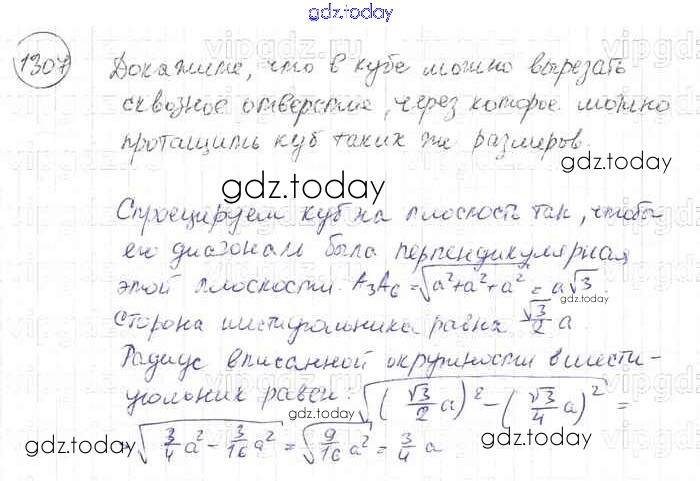 gdz.today
1307 Докажите, что в кубе можно вырезать
сквозное отверстие, через которое можно
протащить куб таких же размеров.
gdz.today
gdz.today
Спроецируем куб на плоскость так, чтобы
его диагональ была перпендикулярная
этой плоскости. A₃A₆ = √(a²+a²+a²) = a√3.
gdz.today
Сторона шестиугольника равна √3/2 a
Радиус вписанной окружности в шести-
угольник равен: √((√3/2 a)² - (√3/4 a)²) =
gdz.today
= √(3/4 a² - 3/16 a²) = √(9/16 a²) = 3/4 a
gdz.today
gdz.today